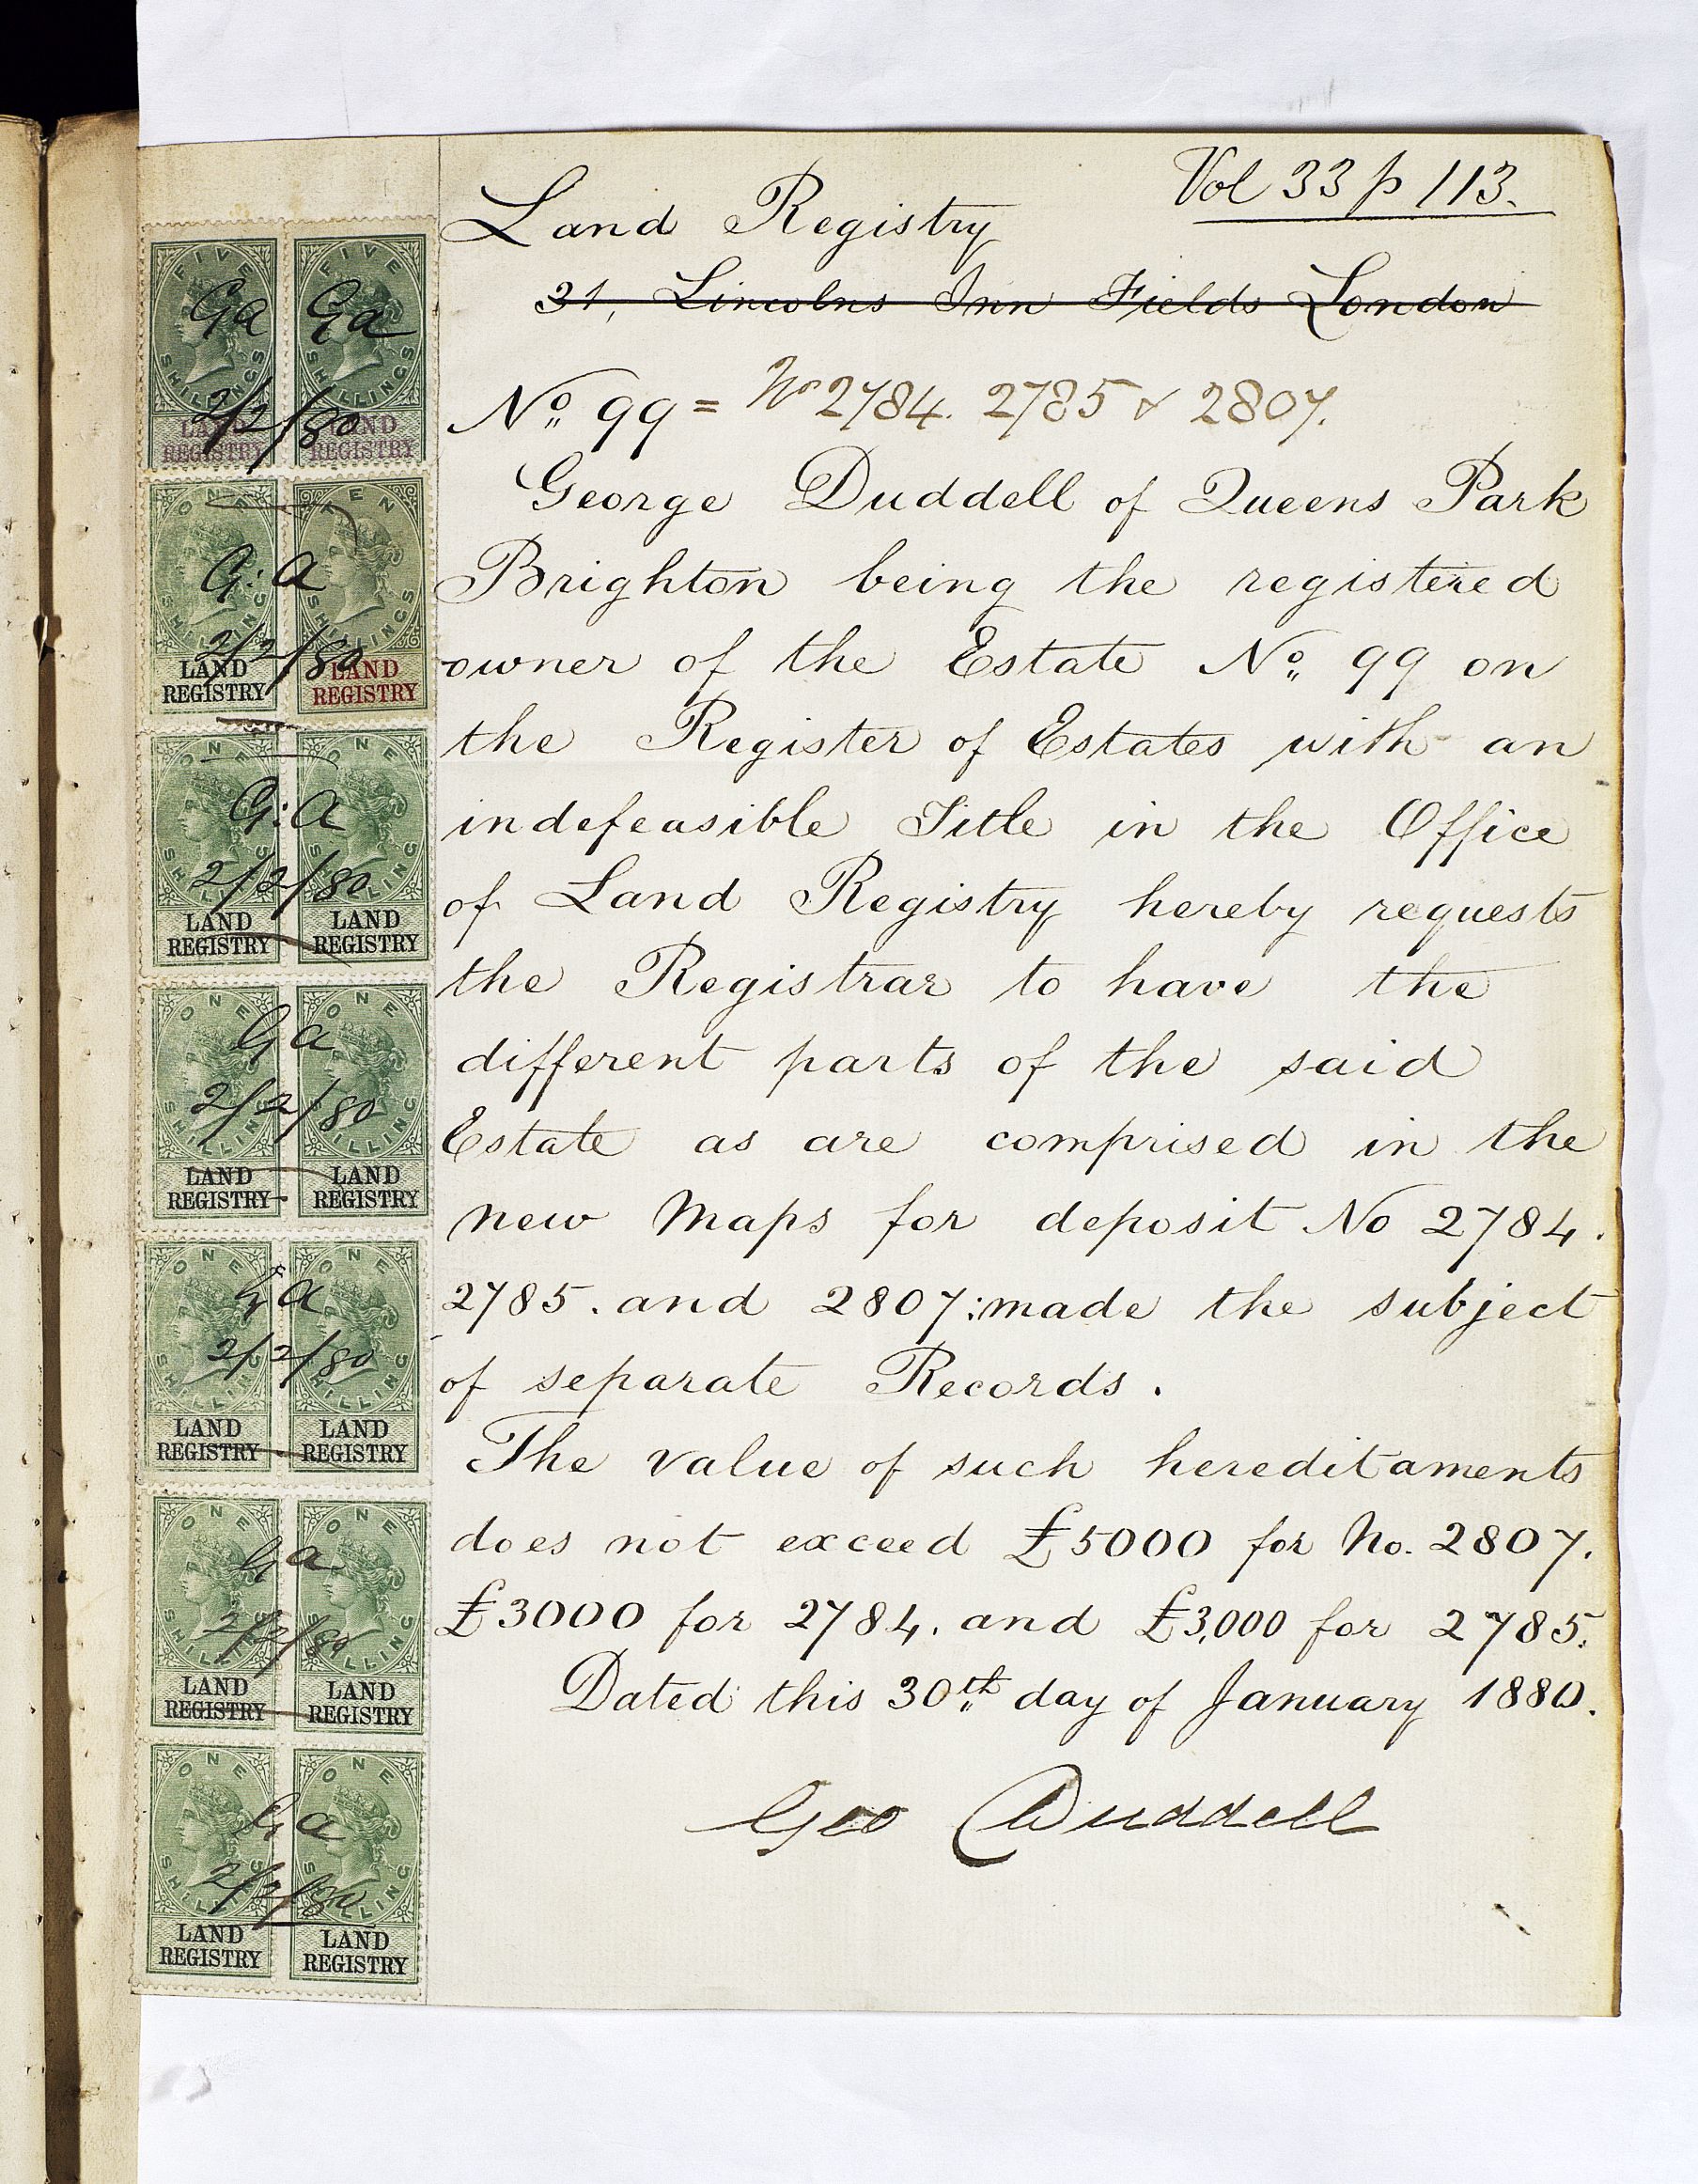 Vol 33 p 113.
Land Registry
31, Lincolns Inn Fields London
No 99 = No 2784. 2785 & 2807.
George Duddell of Queens Park
Brighton being the registered
owner of the Estate No 99 on
the Register of Estates with an
indefeasible Title in the Office
of Land Registry hereby requests
the Registrar to have the
different parts of the said
Estate as are comprised in the
new Maps for deposit No 2784.
2785. and 2807: made the subject
of separate Records.
The value of such hereditaments
does not exceed £5000 for No. 2807.
£3000 for 2784. and £3,000 for 2785.
Dated this 30th day of January 1880.
Geo Duddell
FIVE SHILLINGS FIVE SHILLINGS
Ga Ga
2/2/80
LAND REGISTRY LAND REGISTRY
ONE SHILLING TEN SHILLINGS
G: a
2/2/80
LAND LAND
REGISTRY REGISTRY
ONE SHILLING ONE SHILLING
G: a
2/2/80
LAND LAND
REGISTRY REGISTRY
ONE SHILLING ONE SHILLING
Ga
2/2/80
LAND LAND
REGISTRY REGISTRY
ONE SHILLING ONE SHILLING
Ga
2/2/80
LAND LAND
REGISTRY REGISTRY
ONE SHILLING ONE SHILLING
Ga
2/2/80
LAND LAND
REGISTRY REGISTRY
ONE SHILLING ONE SHILLING
Ga
2/2/80
LAND LAND
REGISTRY REGISTRY